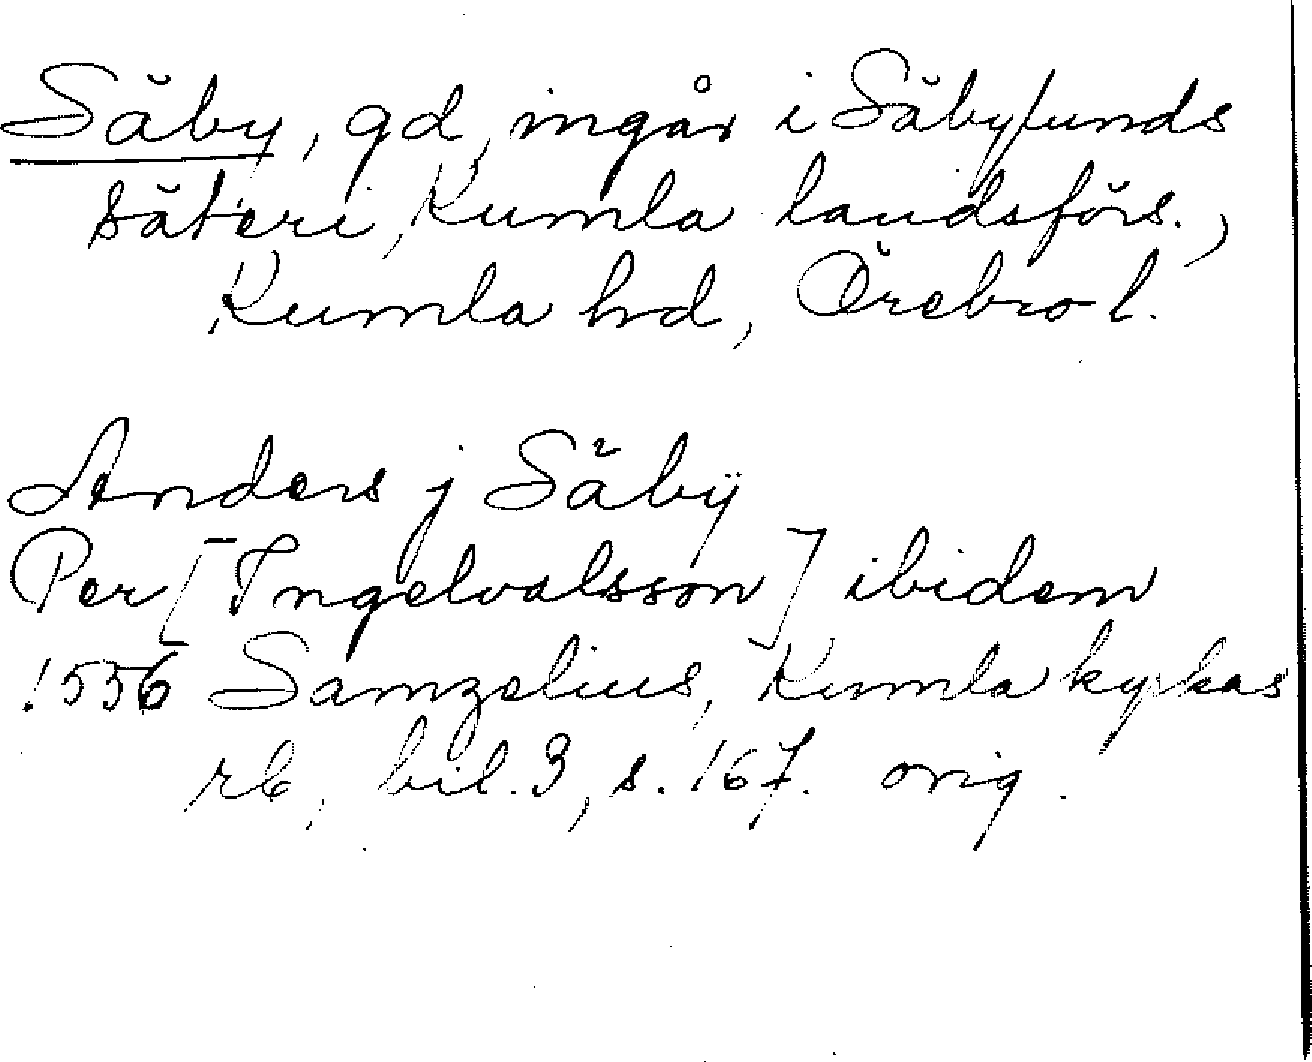 Säby, gd, ingår i Säbylunds
säteri, Kumla landsförs.,
Kumla hd, Örebro l.
Anders j Säbÿ
Per [Ingelvalsson] ibidem
1556 Samzelius, Kumla kyrkas
rb, bil. 3, s. 167. orig.